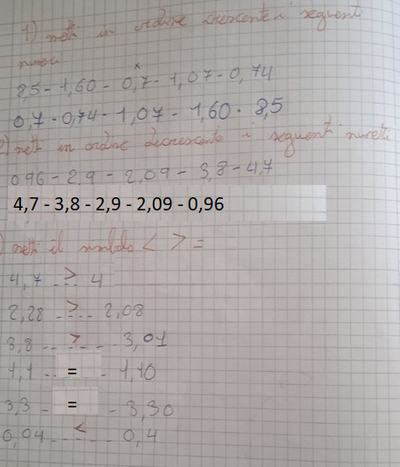 1) metti in ordine crescente i seguenti
numeri
85 - 1,60 - 0,7 - 1,07 - 0,74
0,7 - 0,74 - 1,07 - 1,60 - 8,5
2) metti in ordine decrescente i seguenti numeri
0 96 - 2,9 - 2,09 - 3,8 - 4,7
4,7 - 3,8 - 2,9 - 2,09 - 0,96
) metti il simbolo < > =
4,7 > 4
2,28 > 2,08
3,8 > 3,01
1,1 = 1,10
3,3 = 3,30
0,04 < 0,4